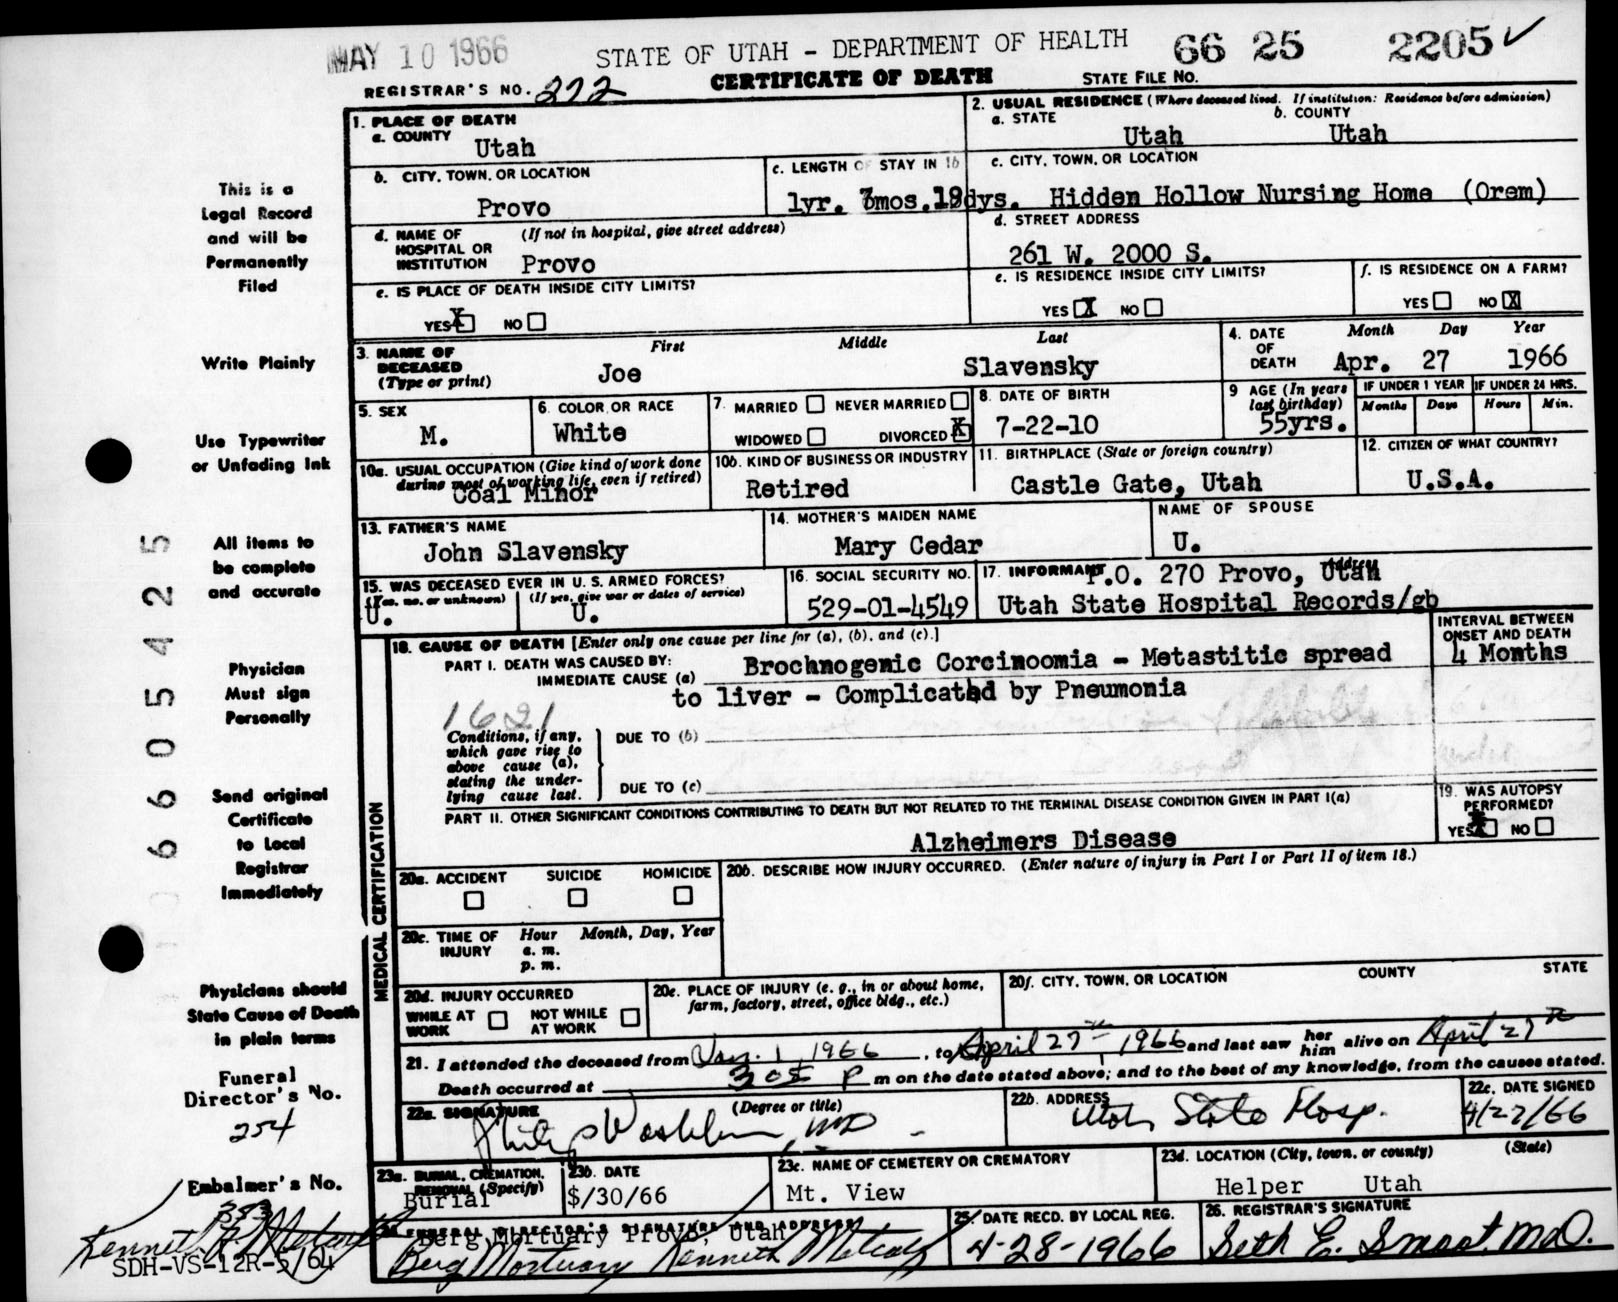 MAY 10 1966
STATE OF UTAH - DEPARTMENT OF HEALTH 66 25 2205
CERTIFICATE OF DEATH STATE FILE NO.
REGISTRAR'S NO. 272
1. PLACE OF DEATH
a. COUNTY
Utah
2. USUAL RESIDENCE (Where deceased lived. If institution: Residence before admission)
a. STATE b. COUNTY
Utah Utah
b. CITY, TOWN, OR LOCATION
Provo
c. LENGTH OF STAY IN 1b
1yr. 3mos.19dys.
c. CITY, TOWN, OR LOCATION
Hidden Hollow Nursing Home (Orem)
d. NAME OF HOSPITAL OR INSTITUTION (If not in hospital, give street address)
Provo
d. STREET ADDRESS
261 W. 2000 S.
e. IS PLACE OF DEATH INSIDE CITY LIMITS?
YES X NO
e. IS RESIDENCE INSIDE CITY LIMITS?
YES X NO
f. IS RESIDENCE ON A FARM?
YES NO X
3. NAME OF DECEASED (Type or print)
First Middle Last
Joe Slavensky
4. DATE OF DEATH
Month Day Year
Apr. 27 1966
5. SEX
M.
6. COLOR OR RACE
White
7. MARRIED NEVER MARRIED
WIDOWED DIVORCED X
8. DATE OF BIRTH
7-22-10
9 AGE (In years last birthday)
55yrs.
IF UNDER 1 YEAR
Months Days
IF UNDER 24 HRS.
Hours Min.
10a. USUAL OCCUPATION (Give kind of work done
during most of working life, even if retired)
Coal Minor
10b. KIND OF BUSINESS OR INDUSTRY
Retired
11. BIRTHPLACE (State or foreign country)
Castle Gate, Utah
12. CITIZEN OF WHAT COUNTRY?
U.S.A.
13. FATHER'S NAME
John Slavensky
14. MOTHER'S MAIDEN NAME
Mary Cedar
NAME OF SPOUSE
U.
15. WAS DECEASED EVER IN U. S. ARMED FORCES?
(Yes, no, or unknown) (If yes, give war or dates of service)
U. U.
16. SOCIAL SECURITY NO.
529-01-4549
17. INFORMANT Address
P.O. 270 Provo, Utah
Utah State Hospital Records/gb
MEDICAL CERTIFICATION
18. CAUSE OF DEATH [Enter only one cause per line for (a), (b), and (c).]
INTERVAL BETWEEN ONSET AND DEATH
4 Months
PART I. DEATH WAS CAUSED BY:
IMMEDIATE CAUSE (a) Brochnogenic Corcinoomia - Metastitic spread
to liver - Complicated by Pneumonia
1621
Conditions, if any,
which gave rise to
above cause (a),
stating the under-
lying cause last.
DUE TO (b)
DUE TO (c)
PART II. OTHER SIGNIFICANT CONDITIONS CONTRIBUTING TO DEATH BUT NOT RELATED TO THE TERMINAL DISEASE CONDITION GIVEN IN PART I(a)
Alzheimers Disease
19. WAS AUTOPSY PERFORMED?
YES X NO
20a. ACCIDENT SUICIDE HOMICIDE
20b. DESCRIBE HOW INJURY OCCURRED. (Enter nature of injury in Part I or Part II of item 18.)
20c. TIME OF INJURY
Hour Month, Day, Year
a. m.
p. m.
20d. INJURY OCCURRED
WHILE AT WORK NOT WHILE AT WORK
20e. PLACE OF INJURY (e. g., in or about home,
farm, factory, street, office bldg., etc.)
20f. CITY, TOWN, OR LOCATION COUNTY STATE
21. I attended the deceased from Jan. 1, 1966, to April 27th 1966 and last saw her him alive on April 27th
Death occurred at 3 05 P m on the date stated above; and to the best of my knowledge, from the causes stated.
22a. SIGNATURE (Degree or title)
Philip Washburn, MD
22b. ADDRESS
Utah State Hosp.
22c. DATE SIGNED
4/27/66
23a. BURIAL, CREMATION, REMOVAL (Specify)
Burial
23b. DATE
$/30/66
23c. NAME OF CEMETERY OR CREMATORY
Mt. View
23d. LOCATION (City, town, or county) (State)
Helper Utah
FUNERAL DIRECTOR'S SIGNATURE AND ADDRESS
Berg Mortuary Provo, Utah
Berg Mortuary Kenneth Metcalf
25. DATE RECD. BY LOCAL REG.
4-28-1966
26. REGISTRAR'S SIGNATURE
Seth E. Smoot, M.D.
This is a
Legal Record
and will be
Permanently
Filed
Write Plainly
Use Typewriter
or Unfading Ink
All items to
be complete
and accurate
Physician
Must sign
Personally
Send original
Certificate
to Local
Registrar
Immediately
Physicians should
State Cause of Death
in plain terms
Funeral
Director's No.
254
Embalmer's No.
353
Kenneth Metcalf
SDH-VS-12R-5/64
66054255